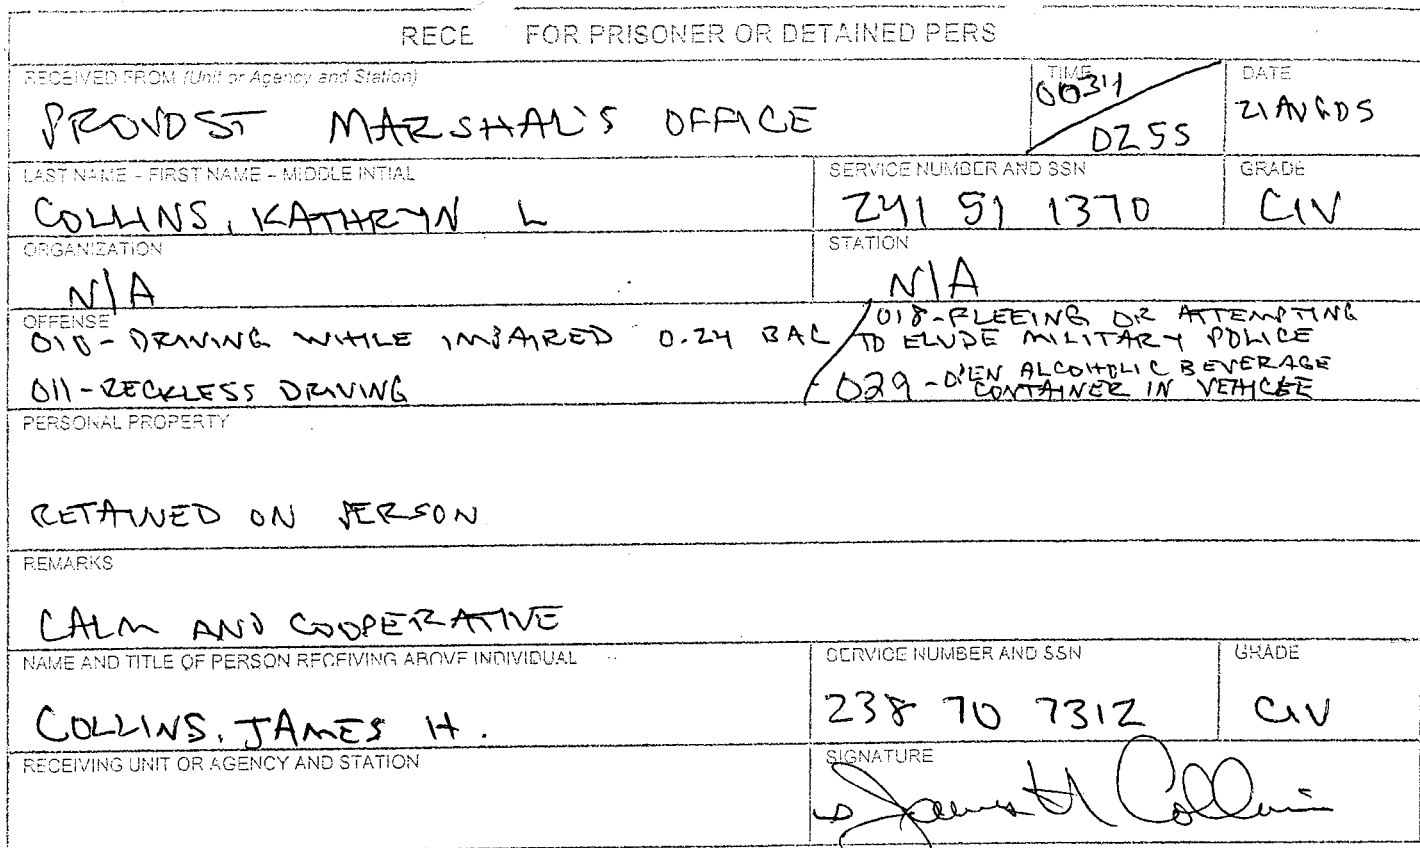 RECE FOR PRISONER OR DETAINED PERS
RECEIVED FROM (Unit or Agency and Station)
PROVOST MARSHAL'S OFFICE
TIME
0255
DATE
21AUG05
LAST NAME - FIRST NAME - MIDDLE INTIAL
COLLINS, KATHRYN L
SERVICE NUMBER AND SSN
241 51 1370
GRADE
CIV
ORGANIZATION
N/A
STATION
N/A
OFFENSE
010- DRIVING WHILE IMPAIRED 0.24 BAC
011- RECKLESS DRIVING
018- FLEEING OR ATTEMPTING
TO ELUDE MILITARY POLICE
029 - OPEN ALCOHOLIC BEVERAGE
CONTAINER IN VEHICLE
PERSONAL PROPERTY
RETAINED ON PERSON
REMARKS
CALM AND COOPERATIVE
NAME AND TITLE OF PERSON RECEIVING ABOVE INDIVIDUAL
COLLINS, JAMES H.
SERVICE NUMBER AND SSN
238 70 7312
GRADE
CIV
RECEIVING UNIT OR AGENCY AND STATION
SIGNATURE
James H Collins